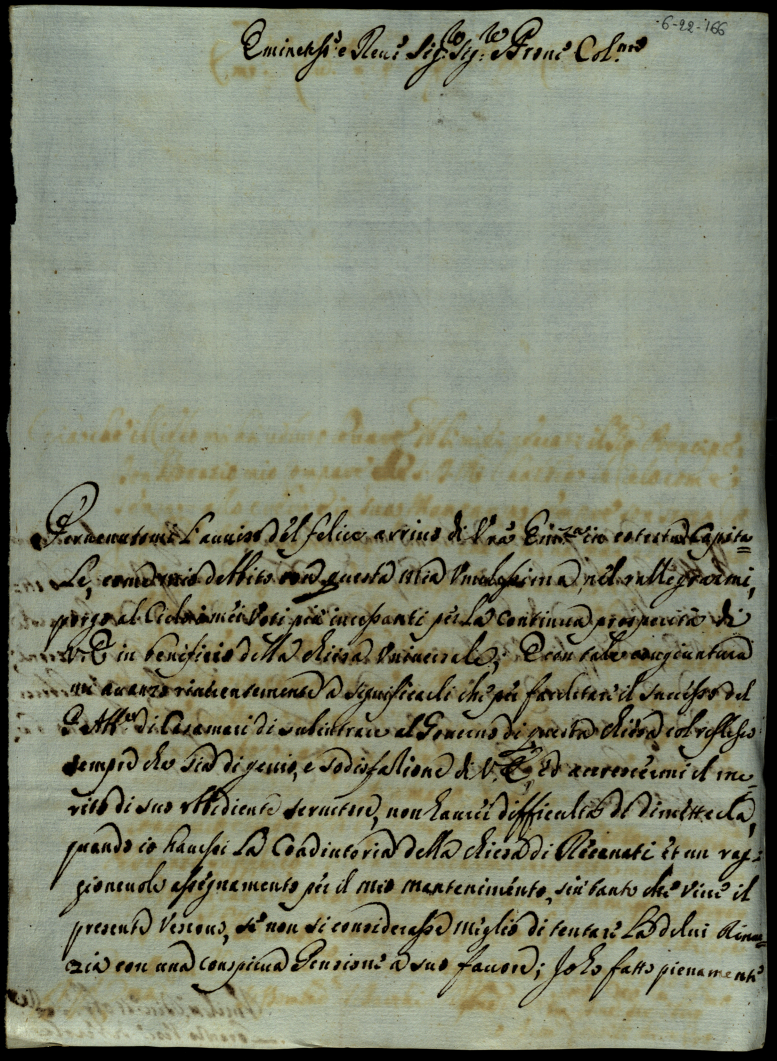 6-22-166
Eminentiss.º e Reu.º Sig.r Sig.r Pron.e Col.mo
Peruenutomi l'auuiso del felice arriuo di V.ra Emza in cotesta Capita=
le, come mio debbito con questa mia vmilissima nel rallegrarmi,
porgo al Cielo i miei Voti più incessanti per la continua prosperità di
V. E. in beneficio della chiesa Vniuersale; E con tale congiuntura
mi auanzo riuerentemente a significarli che per facilitare il successo del
P. Abb.e di Casamari di subintrare al Gouerno di questa chiesa col riflesso
sempre che sia di genio, e sodisfazione di V. E., ed accrescermi il me=
rito di suo obbidiente seruitore, non hauerei difficultà di dimetterla,
quando io hauessi la Coadiutoria della chiesa di Recanati et un rag=
gioneuole assegnamento per il mio mantenimento, sin tanto che viue il
presente Vescouo, se non si considerasse meglio di tentare la di lui Rinun=
zia con una conspicua Pensione a suo fauore; Io ho fatto pienamente